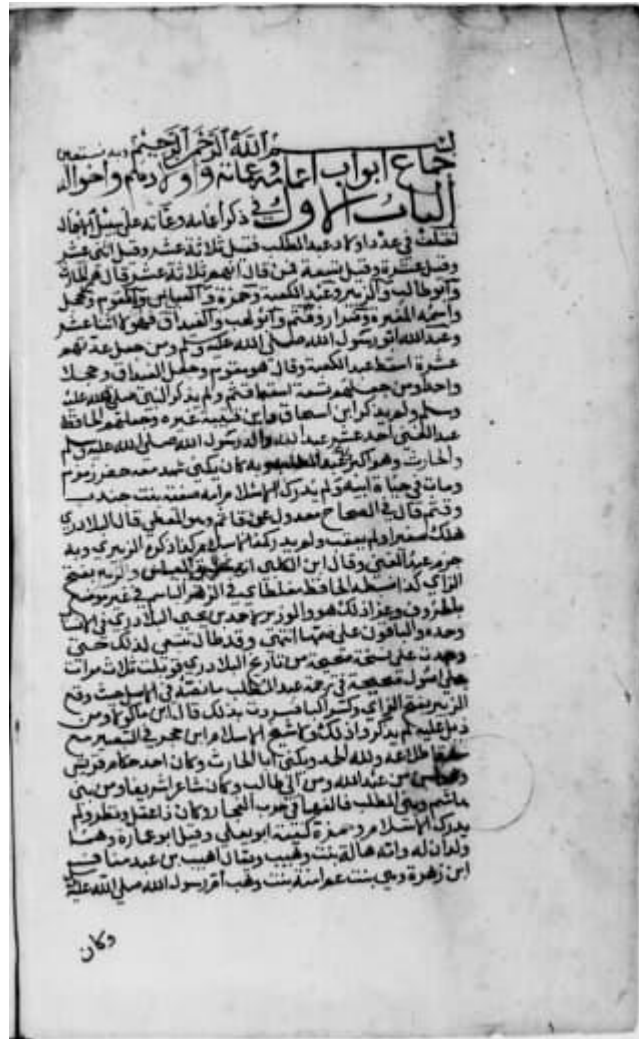 بسم الله الرحمن الرحيم وبه نستعين
جماع ابواب اعمامه وعماته واولادهم واخواله
الباب الاول في ذكر اعمامه وعماته على سبيل الاجمال
اختلف في عدد اولاد عبد المطلب فقيل ثلاثة عشر وقيل اثنى عشر
وقيل عشرة وقيل تسعة فمن قال انهم ثلاثة عشر قال هم الحارث
وابو طالب والزبير وعبد الكعبة وحمزة والعباس والمقوم وحجل
واسمه المغيرة وضرار وقثم وابو لهب والغيداق فهولا اثنا عشر
وعبد الله ابو رسول الله صلى الله عليه وسلم ومن جعل عدتهم
عشرة اسقط عبد الكعبة وقال هو مقوم وجعل الغيداق وحجلا
واحدا ومن جعلهم تسعة اسقط قثم ولم يذكر النبي صلى الله عليه
وسلم ولم يذكر ابن اسحاق وابن قتيبة غيره وجعلهم الحافظ
عبد الغني احد عشر عبد الله والد رسول الله صلى الله عليه وسلم
والحارث وهو اكبر عبد المطلب وبه كان يكنى شهد معه حفر زمزم
ومات في حياة ابيه ولم يدرك الاسلام امه صفية بنت جندب
وقثم قال في الصحاح معدول عن قاثم وهو المعطي قال البلاذري
هلك صغيرا ولم يعقب ولم يدرك الاسلام كذا ذكره الزبيري وبه
جزم عبد الغني وقال ابن الكلبي انه شقيق العباس والزبير بفتح
الزاي كذا ضبطه الحافظ مغلطاي في الزهر الباسم في غير موضع
بالحروف وعزا ذلك هو والوزير لاحمد بن يحيى البلاذري في الانساب
وحده والباقون على ضمها انتهى وقد طال تفتشي لذلك حتى
وجدت على نسخة صحيحة من تاريخ البلاذري قوبلت ثلاث مرات
على اصول صحيحة في ترجمة عبد المطلب ما نصه
الزبير بفتح الزاي وكسر البا فسررت بذلك قال ابن ماكولا ومن
ذيل عليه لم يذكروا ذلك ولا شيخ الاسلام ابن حجر في التبصير مع
اطلاعه ولله الحمد ويكنى ابا الحارث وكان احد حكام قريش
من عبد الله ومن ابي طالب وكان شاعرا شريفا ومن بني
هاشم وبني المطلب في حرب الفجار وكان ذا عقل ونظر ولم
يدرك الاسلام وحمزة كنيته ابو يعلى وقيل ابو عمارة وهما
ولدان له وامه هالة بنت وهيب ويقال اهيب بن عبد مناف
ابن زهرة وهي بنت عم امنة بنت وهب ام رسول الله صلى الله عليه
وكان